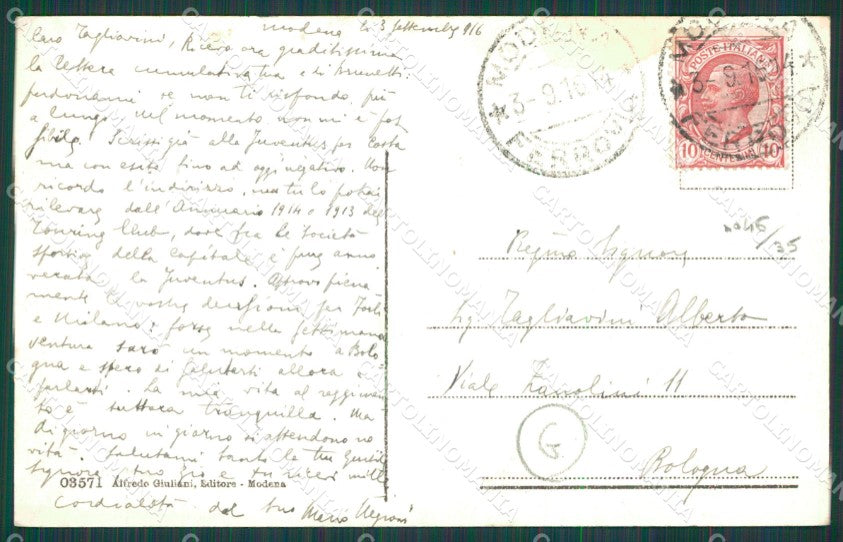 Modena li 3 Settembre 916
Caro Tagliavini, Ricevo ora graditissima
la lettera cumulativa tua e di Brunetti.
perdonami se non ti rispondo più
a lungo nel momento non mi è pos
sibile. Scrissi già alla Juventus per
ma con esito fino ad oggi negativo. Non
ricordo l'indirizzo, ma tu lo potrai
rilevare dall'Annuario 1914 o 1913 del
Touring Club, dove fra le Società
sportive della Capitale è pure anno
verata la Juventus. Approvo piena
mente la vostra decisione per Forlì
e Milano; forse nella settimana
ventura sarò un momento a Bolo
gna e spero di salutarti allora e
parlarti. La mia vita al reggimen
to è tuttora tranquilla. Ma
di giorno in giorno si attendono no
vità. Salutami tanto la tua gentile
Signora, tuo zio e tu ricevi mille
cordialità dal tuo Mario
03571 Alfredo Giuliani, Editore - Modena
MODENA
3-9.16
FERROVIA
POSTE ITALIANE
10 CENTESIMI 10
MODENA
3-9.16
FERROVIA
45/35
Signor
Sig Tagliavini Alberto
Viale Zanolini 11
G
Bologna
CARTOLINOMANIA